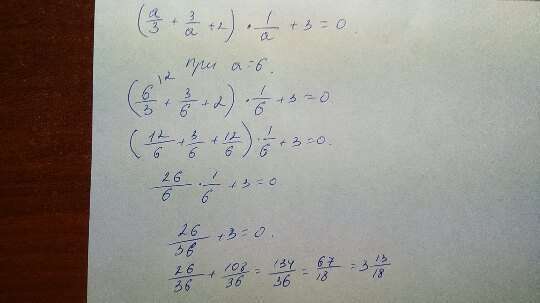 (a/3 + 3/a + 2) · 1/a + 3 = 0.
при a=6.
(6/3 ^,2 + 3/6 + 2) · 1/6 + 3 = 0
(12/6 + 3/6 + 12/6) · 1/6 + 3 = 0.
26/6 · 1/6 + 3 = 0
26/36 + 3 = 0.
26/36 + 108/36 = 134/36 = 67/18 = 3 13/18